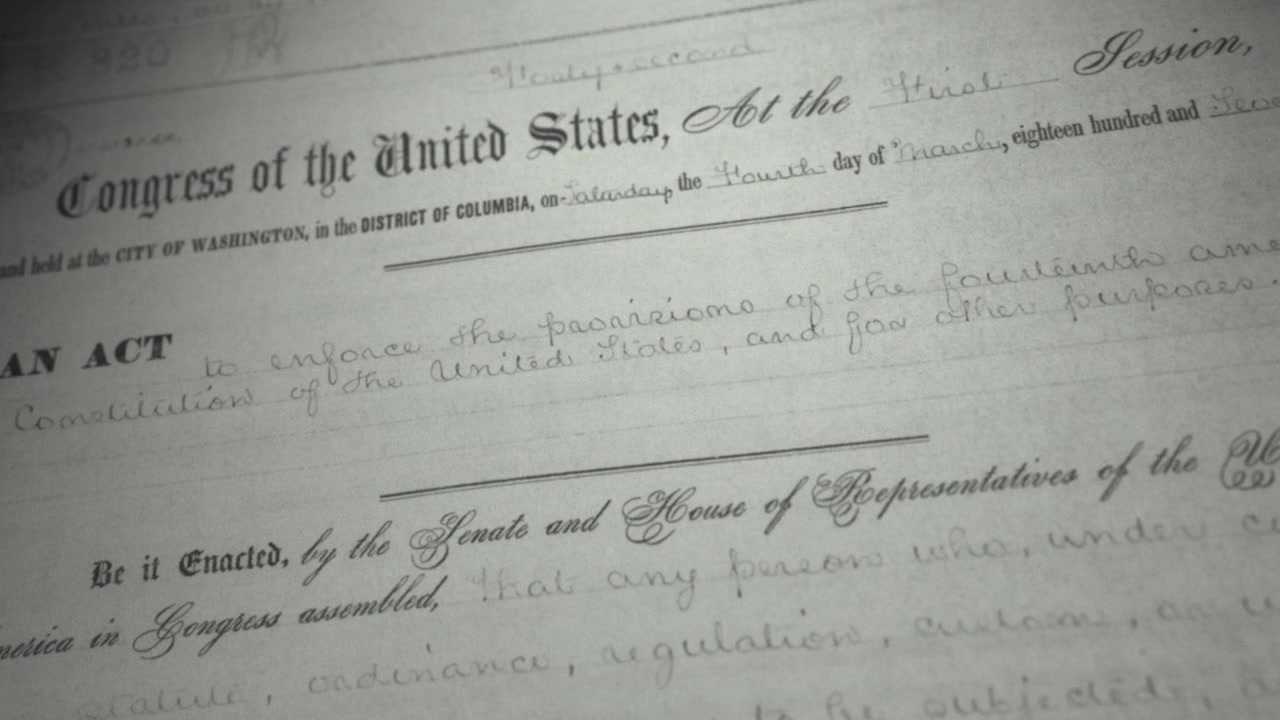 R 320
Forty-second
Congress of the United States, At the First Session,
and held at the CITY OF WASHINGTON, in the DISTRICT OF COLUMBIA, on Saturday, the Fourth day of March, eighteen hundred and Seve
AN ACT to enforce the provisions of the fourteenth ame
Constitution of the United States, and for other purposes.
Be it Enacted, by the Senate and House of Representatives of the U
merica in Congress assembled, That any person who, under co
statute, ordinance, regulation, custom, or u
to be subjected, a